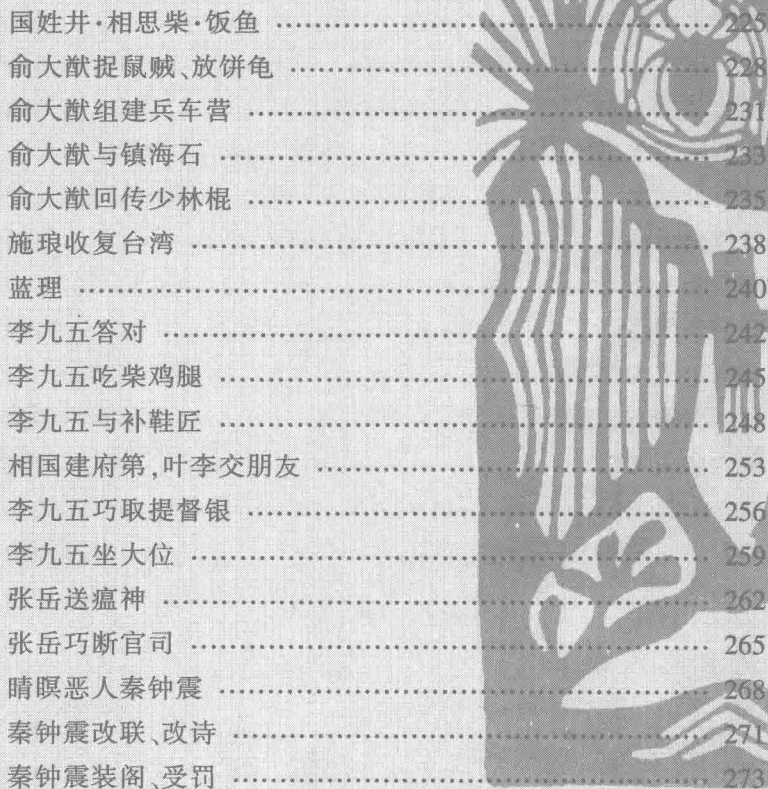 国姓井·相思柴·饭鱼 …… 225
俞大猷捉鼠贼、放饼龟 …… 228
俞大猷组建兵车营 …… 231
俞大猷与镇海石 …… 233
俞大猷回传少林棍 …… 235
施琅收复台湾 …… 238
蓝理 …… 240
李九五答对 …… 242
李九五吃柴鸡腿 …… 245
李九五与补鞋匠 …… 248
相国建府第,叶李交朋友 …… 253
李九五巧取提督银 …… 256
李九五坐大位 …… 259
张岳送瘟神 …… 262
张岳巧断官司 …… 265
睛暝恶人秦钟震 …… 268
秦钟震改联、改诗 …… 271
秦钟震装阁、受罚 …… 273